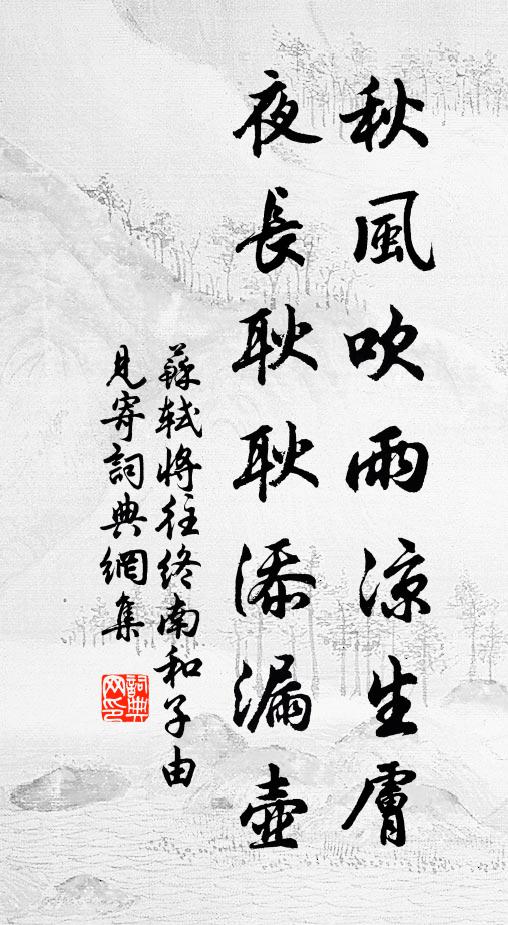 秋風吹雨凉生膚
夜長耿耿添漏壺
蘇軾將往終南和子由
見寄詞典網集
詞典
网印